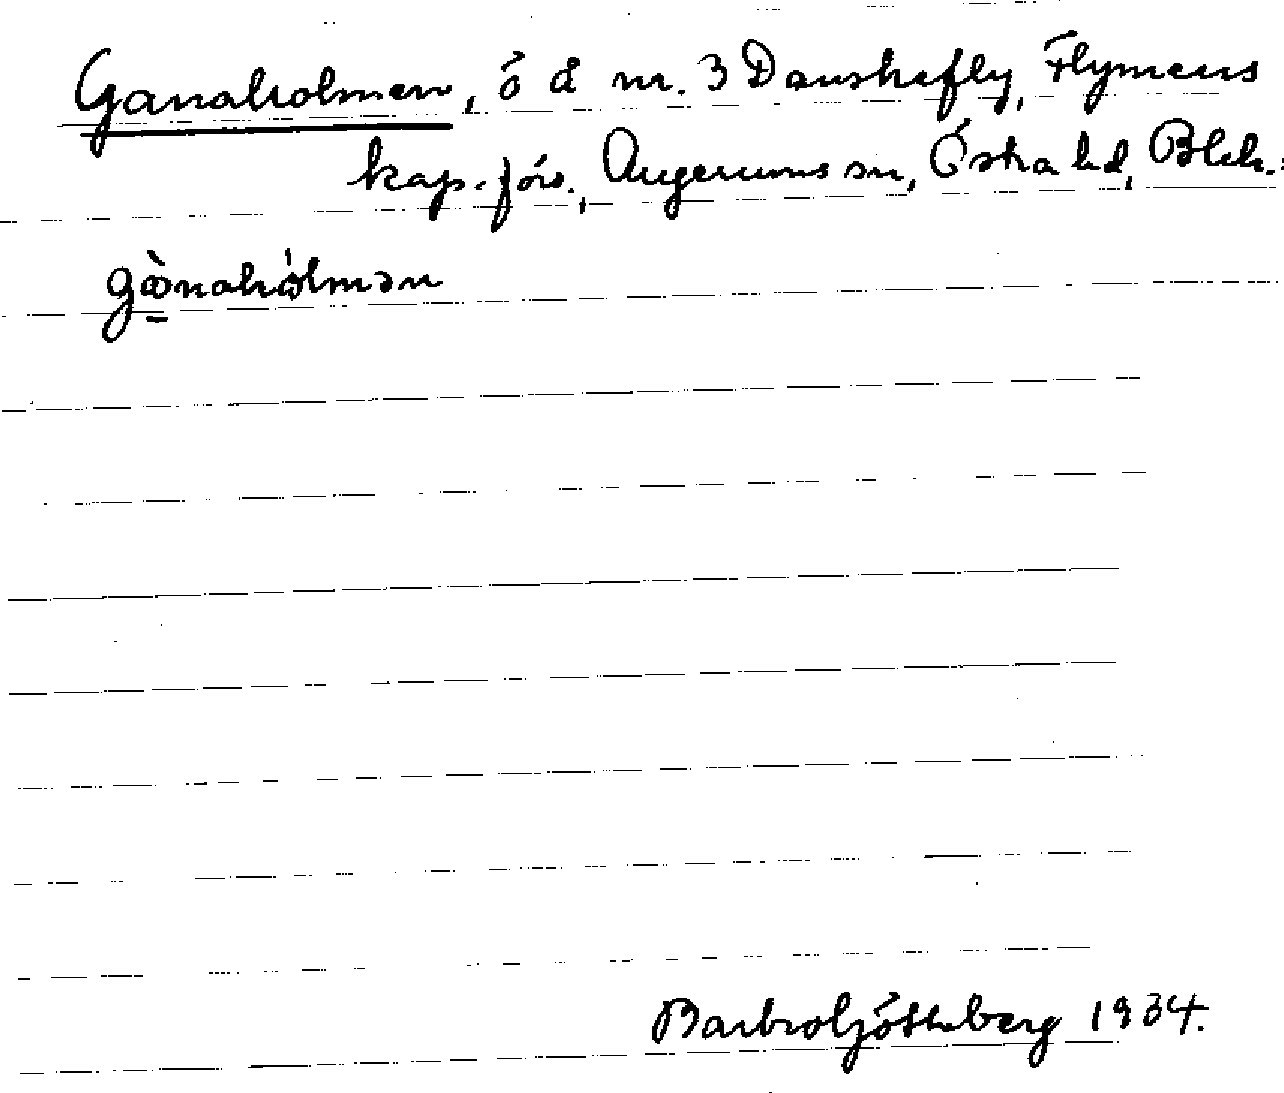 Ganaholmen, ö å nr. 3 Danskefly, Flymens
kap. förs., Augerums sn, Östra hd, Blek.
gònahólmən
Barbro Göthberg 1934.